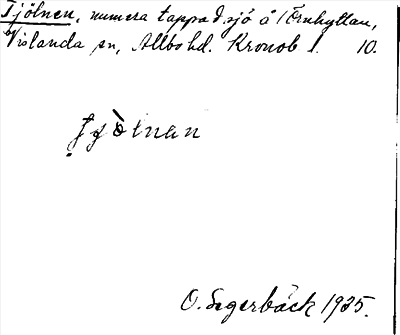 Tjölnen, numera tappad sjö å Örnhyltan,
Vislanda sn, Allbo hd. Kronob l. 10.
O. Segerbäck 1935.